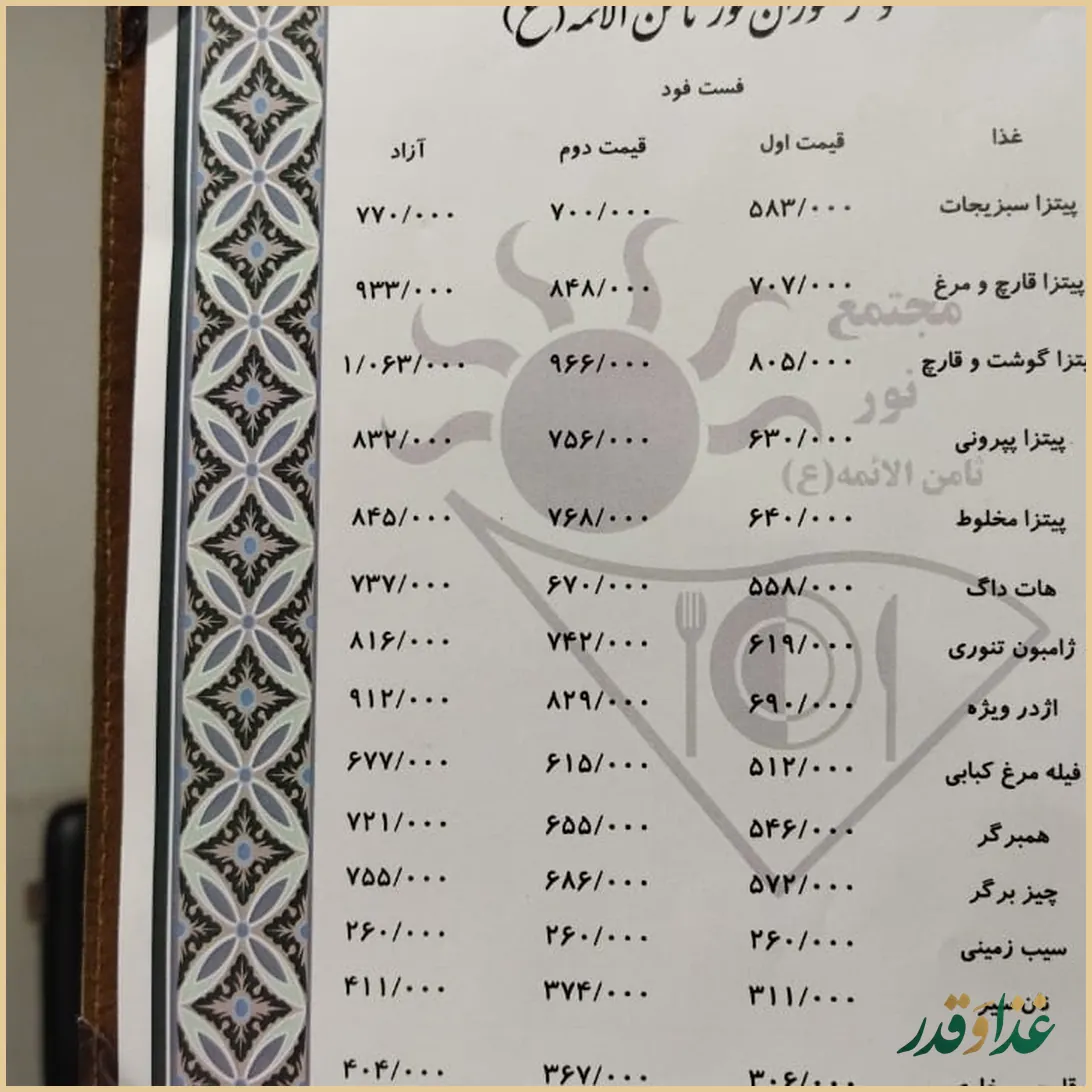 ثامن الائمه(ع)
فست فود
غذا قیمت اول قیمت دوم آزاد
پیتزا سبزیجات ۵۸۳/۰۰۰ ۷۰۰/۰۰۰ ۷۷۰/۰۰۰
پیتزا قارچ و مرغ ۷۰۷/۰۰۰ ۸۴۸/۰۰۰ ۹۳۳/۰۰۰
مجتمع
پیتزا گوشت و قارچ ۸۰۵/۰۰۰ ۹۶۶/۰۰۰ ۱/۰۶۳/۰۰۰
نور
پیتزا پپرونی ۶۳۰/۰۰۰ ۷۵۶/۰۰۰ ۸۳۲/۰۰۰
ثامن الائمه(ع)
پیتزا مخلوط ۶۴۰/۰۰۰ ۷۶۸/۰۰۰ ۸۴۵/۰۰۰
هات داگ ۵۵۸/۰۰۰ ۶۷۰/۰۰۰ ۷۳۷/۰۰۰
ژامبون تنوری ۶۱۹/۰۰۰ ۷۴۲/۰۰۰ ۸۱۶/۰۰۰
اژدر ویژه ۶۹۰/۰۰۰ ۸۲۹/۰۰۰ ۹۱۲/۰۰۰
فیله مرغ کبابی ۵۱۲/۰۰۰ ۶۱۵/۰۰۰ ۶۷۷/۰۰۰
همبرگر ۵۴۶/۰۰۰ ۶۵۵/۰۰۰ ۷۲۱/۰۰۰
چیز برگر ۵۷۲/۰۰۰ ۶۸۶/۰۰۰ ۷۵۵/۰۰۰
سیب زمینی ۲۶۰/۰۰۰ ۲۶۰/۰۰۰ ۲۶۰/۰۰۰
نان سیر ۳۱۱/۰۰۰ ۳۷۴/۰۰۰ ۴۱۱/۰۰۰
غذا و قدر
۳۰۶/۰۰۰ ۳۶۷/۰۰۰ ۴۰۴/۰۰۰